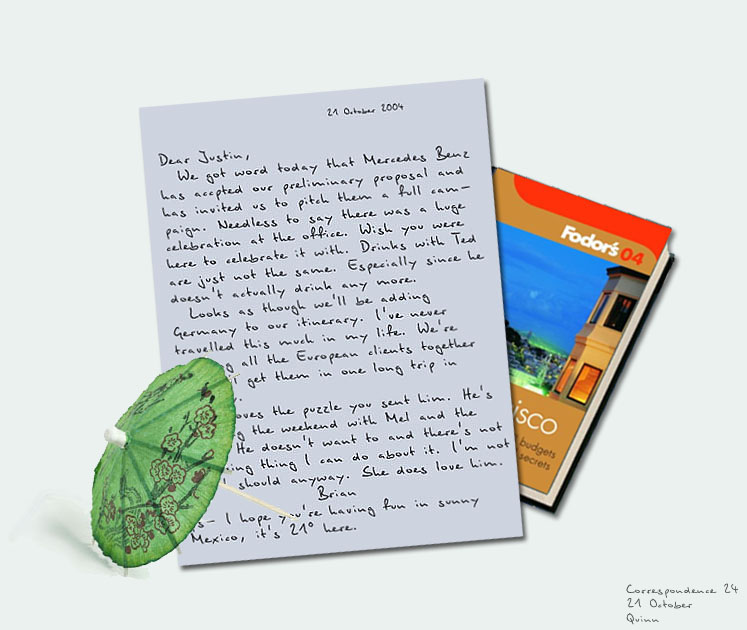 21 October 2004
Dear Justin,
We got word today that Mercedes Benz
has accpted our preliminary proposal and
has invited us to pitch them a full cam-
paign. Needless to say there was a huge
celebration at the office. Wish you were
here to celebrate it with. Drinks with Ted
are just not the same. Especially since he
doesn't actually drink any more.
Looks as though we'll be adding
Germany to our itinerary. I've never
travelled this much in my life. We're
all the European clients together
get them in one long trip in
the puzzle you sent him. He's
the weekend with Mel and the
He doesn't want to and there's not
thing I can do about it. I'm not
I should anyway. She does love him.
Brian
I hope you're having fun in sunny
Mexico, it's 21° here.
Fodor's 04
isco
budgets
secrets
Correspondence 24
21 October
Quinn